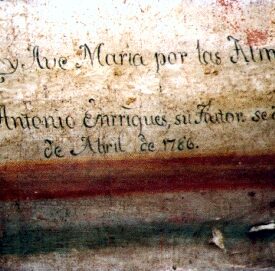 y. Ave Maria por las Alm
Antonio Enrriques, su Autor. se a
de Abril de 1786.